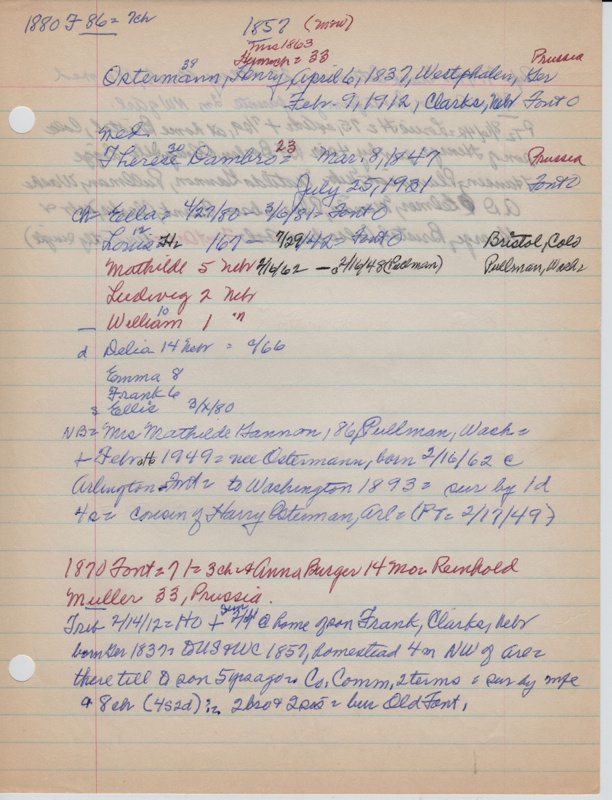 1880 F 86 = 7ch
1857 (mow)
Tms 1863
Heinrich = 33
Prussia
39
Ostermann, Henry, April 6, 1837, Westphalen, Ger
Febr. 9, 1912, Clarks, Nebr Font O
ned
34 23
Therese Dambro = Mar. 8, 1847 Prussia
July 25, 1931 Font O
Ch = Ella = 4/27/80 - 3/6/81 = Font O
12
Louis H2 /67 - 7/29/42 = Font O Bristol, Colo
Mathilde 5 Nebr 2/16/62 - 2/16/48 (Pullman) Pullman, Wash
Ludwig 2 Nebr
10
- William 1 "
d Delia 14 Nebr = c/66
Emma 8
Frank 6
s Ellis 3/x/80
NB = Mrs Mathilde Hannon, 86, Pullman, Wash =
+ Febr 1949 = nee Ostermann, born 2/16/62 @
Arlington Font = to Washington 1893 = sur by 1d
4s = cousin of Harry Osterman, Arl = (PT = 2/17/49)
1870 Font = 71 = 3ch + Anna Burger 14 Mo Reinhold
Muller 33, Prussia.
Trib 2/14/12 = HO + @ home of son Frank, Clarks, Nebr
born Ger 1837 = US + WC 1857, homestead 4m NW of Arl =
there till @ son 5 yrs ago = Co. Comm. 2 terms = sur by wife
+ 8ch (4s2d) 2bro + 2sis = bur Old Font.